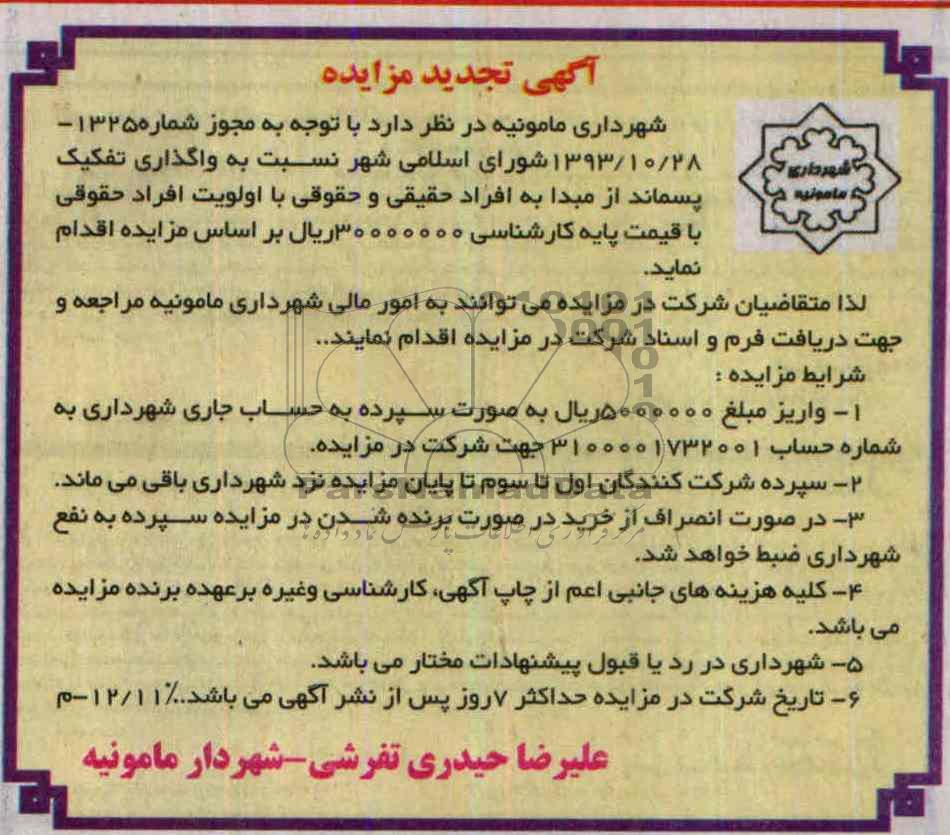 آگهی تجدید مزایده
شهرداری مامونیه
شهرداری مامونیه در نظر دارد با توجه به مجوز شماره۱۳۲۵-
۱۳۹۳/۱۰/۲۸شورای اسلامی شهر نسبت به واگذاری تفکیک
پسماند از مبدا به افراد حقیقی و حقوقی با اولویت افراد حقوقی
با قیمت پایه کارشناسی ۳۰۰۰۰۰۰۰ریال بر اساس مزایده اقدام
نماید.
لذا متقاضیان شرکت در مزایده می توانند به امور مالی شهرداری مامونیه مراجعه و
جهت دریافت فرم و اسناد شرکت در مزایده اقدام نمایند..
شرایط مزایده :
۱- واریز مبلغ ۵۰۰۰۰۰۰ریال به صورت سپرده به حساب جاری شهرداری به
شماره حساب ۳۱۰۰۰۰۱۷۳۲۰۰۱ جهت شرکت در مزایده.
۲- سپرده شرکت کنندگان اول تا سوم تا پایان مزایده نزد شهرداری باقی می ماند.
ParsNamadData
۳- در صورت انصراف از خرید در صورت برنده شدن در مزایده سپرده به نفع
شهرداری ضبط خواهد شد.
۴- کلیه هزینه های جانبی اعم از چاپ آگهی، کارشناسی وغیره برعهده برنده مزایده
می باشد.
۵- شهرداری در رد یا قبول پیشنهادات مختار می باشد.
۶- تاریخ شرکت در مزایده حداکثر ۷روز پس از نشر آگهی می باشد..٪۱۲/۱۱-م
علیرضا حیدری تفرشی-شهردار مامونیه